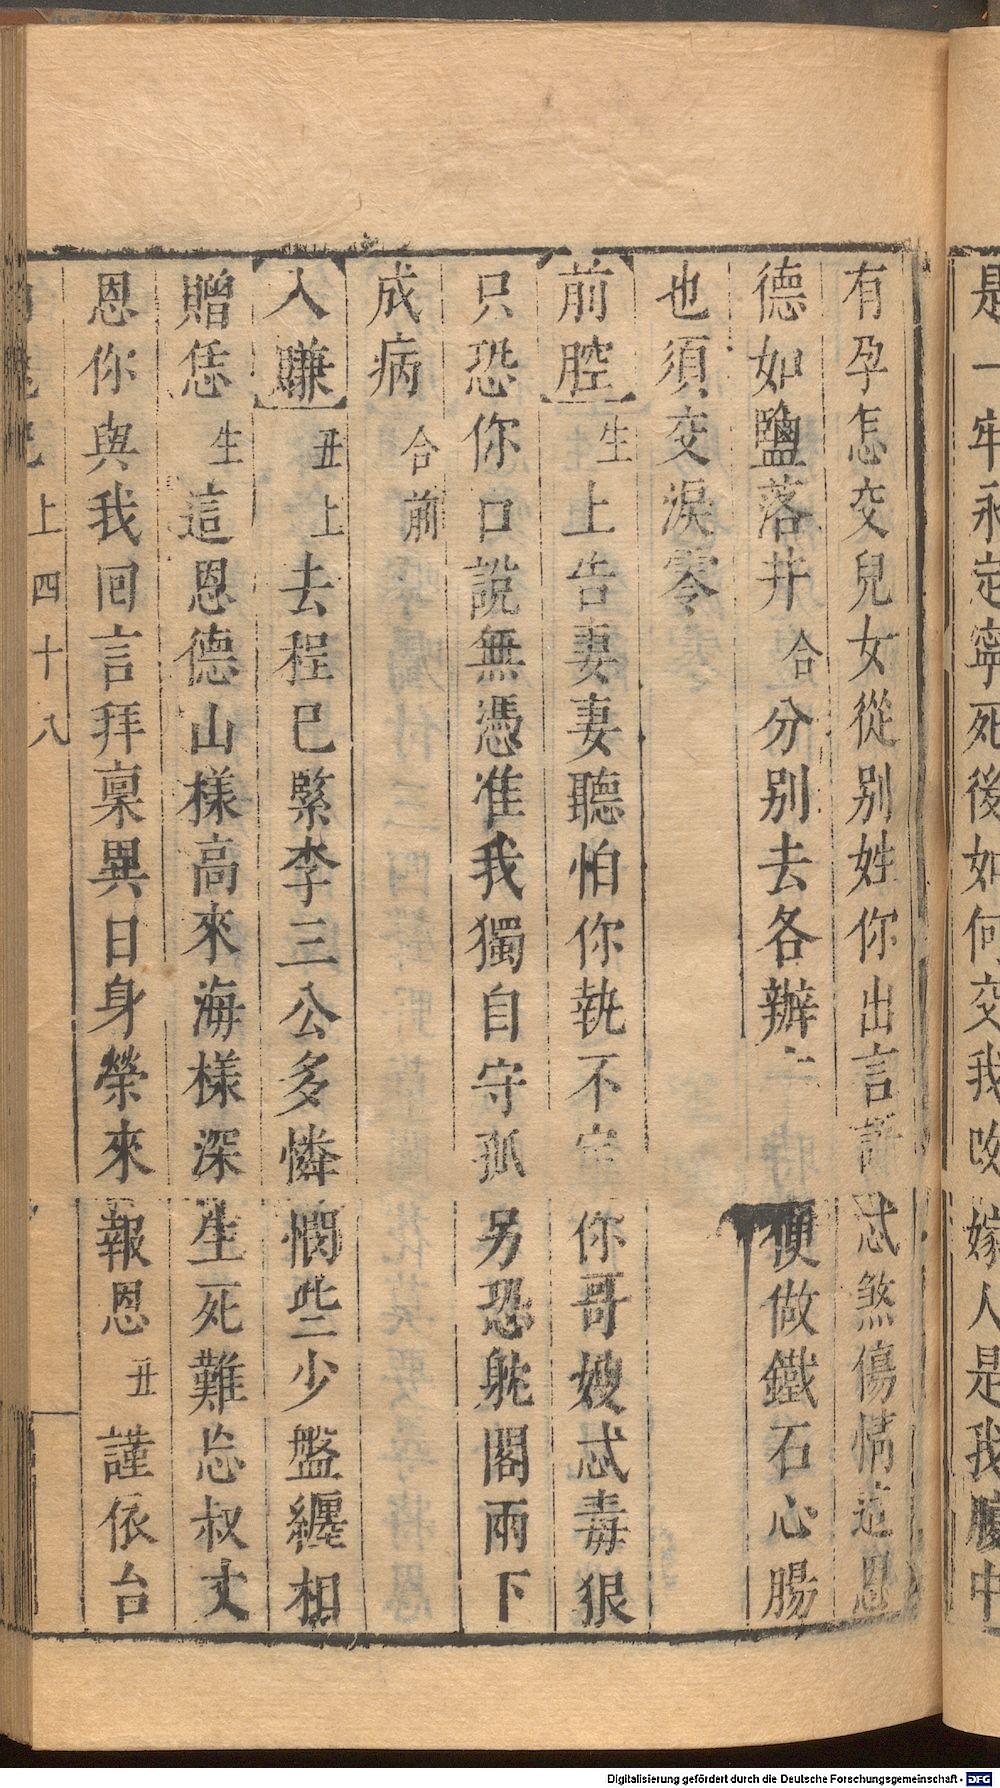 是一牢永定寧死後如何交我改嫁人是我腹中
有孕怎交兒女從别姓你出言語忒煞傷情這恩
德如鹽落井合分别去各辦 便做鐵石心腸
也須交淚零
前腔生上告妻妻聽怕你執不定你哥嫂忒毒狠
只恐你口說無憑准我獨自守孤另恐躭閣兩下
成病合前
入賺丑上去程已緊李三公多憐憫些少盤纏相
贈恁生這恩德山樣高來海樣深生死難忘叔丈
恩你與我回言拜稟異日身榮來報恩丑謹依台
上四十八
Digitalisierung gefördert durch die Deutsche Forschungsgemeinschaft - DFG